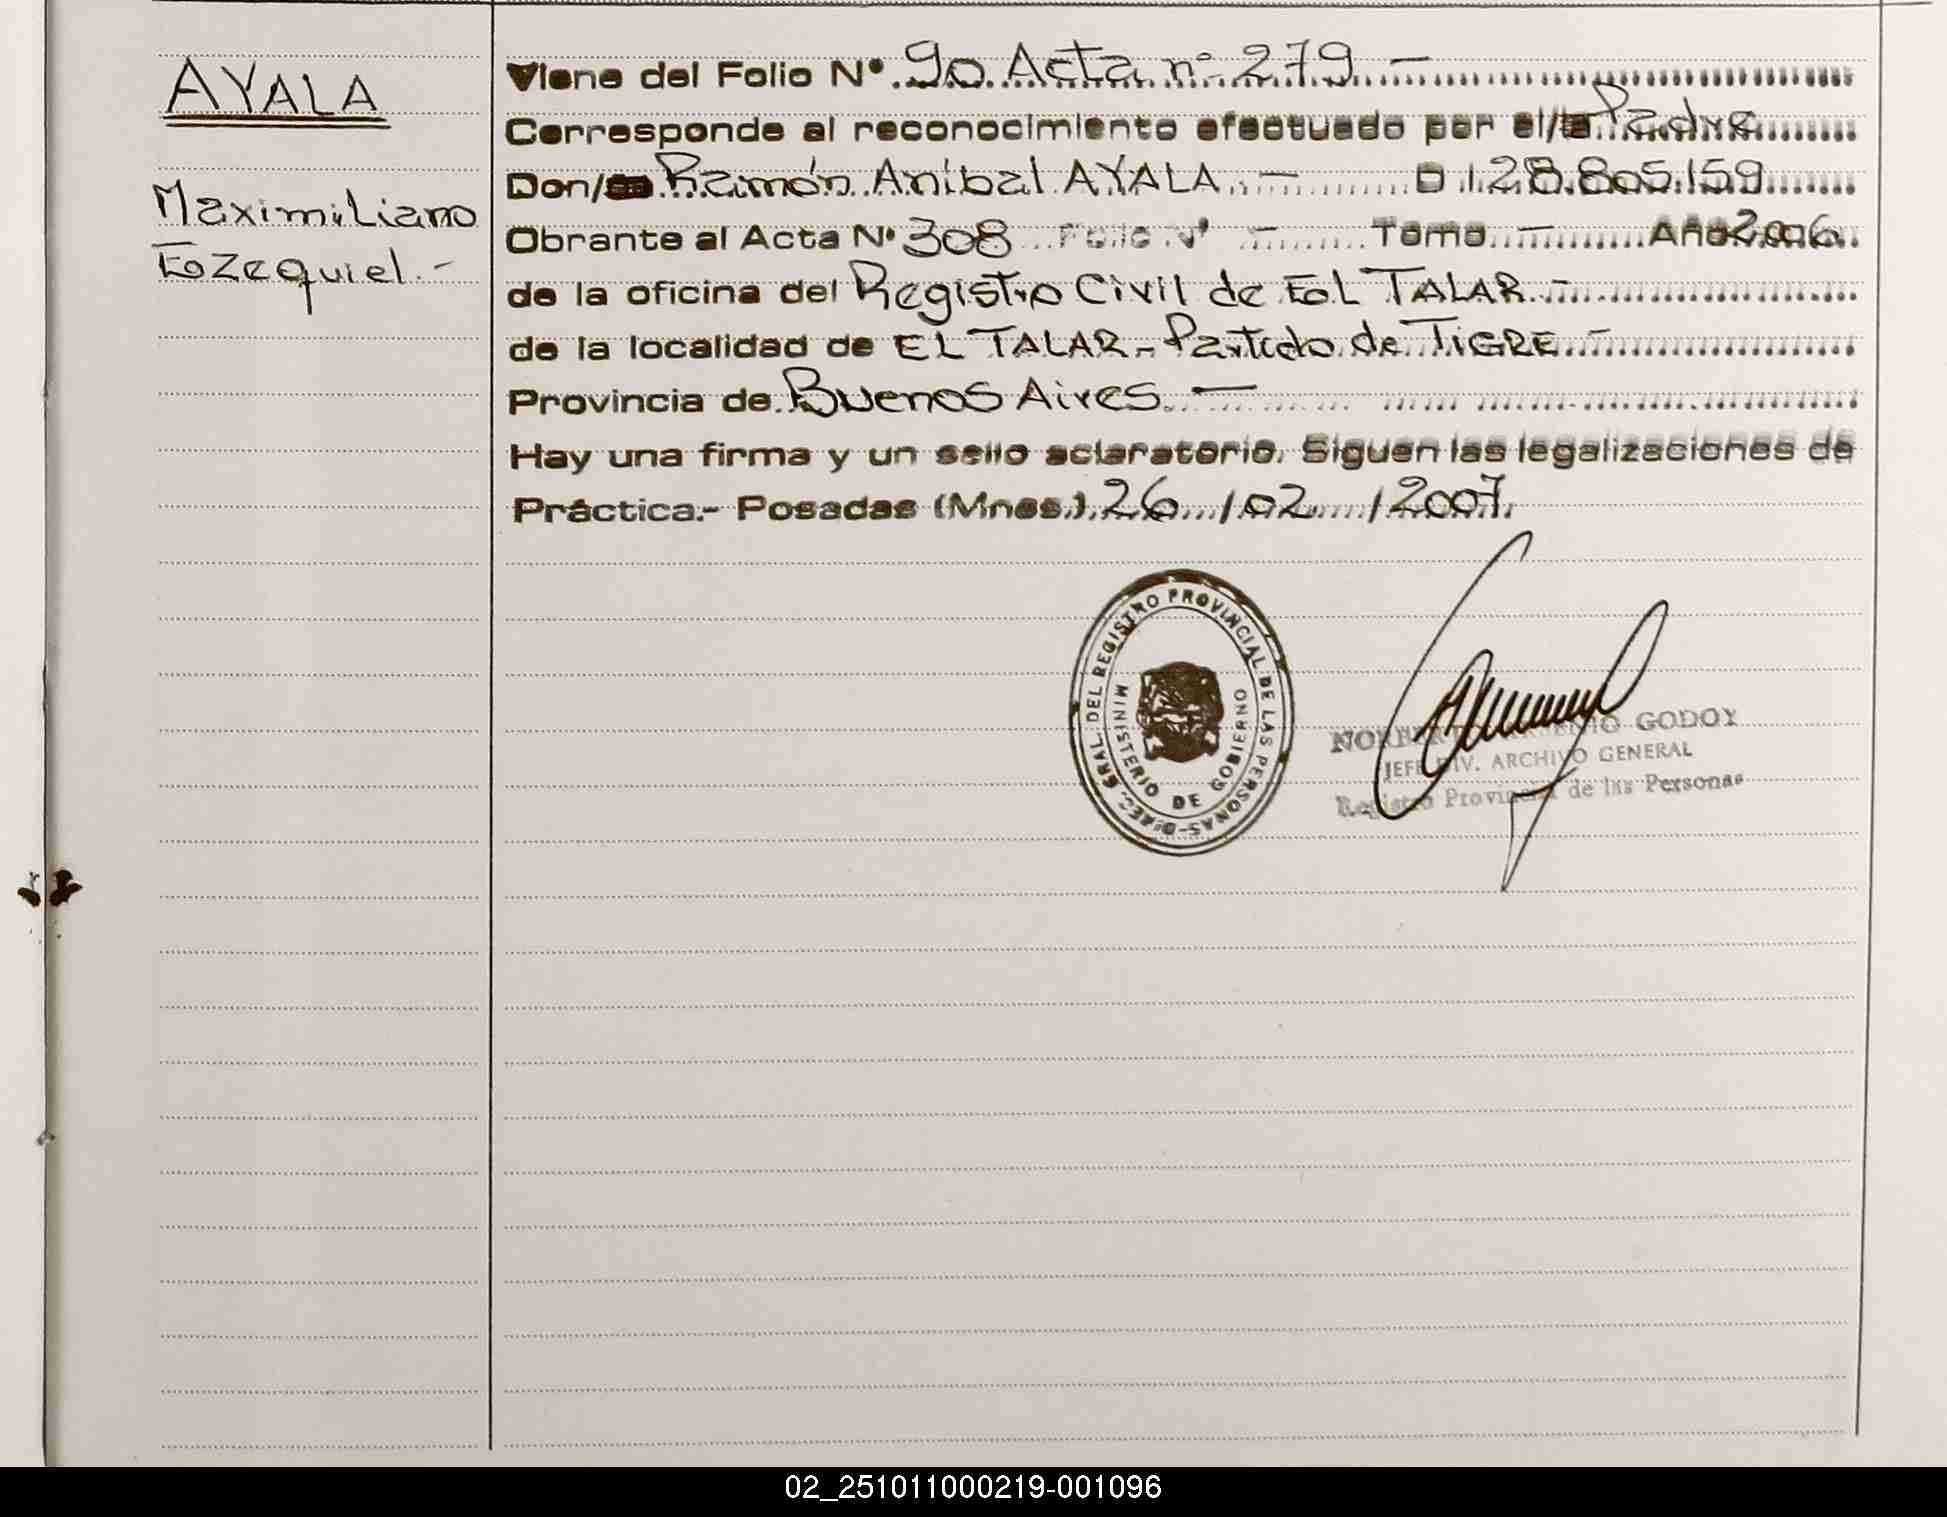 AYALA
Maximiliano
Ezequiel.-
Viene del Folio Nº 90 Acta nº 279 —
Corresponde al reconocimiento efectuado por el/la Padre
Don/ Ramón Aníbal AYALA — D.I. 28.805.159
Obrante al Acta Nº 308 Folio Nº — Tomo — Año 2006
de la oficina del Registro Civil de EL TALAR -
de la localidad de EL TALAR - Partido de TIGRE -
Provincia de Buenos Aires. —
Hay una firma y un sello aclaratorio. Siguen las legalizaciones de
Práctica.- Posadas (Mnes.) 26 / 02 / 2007.
GRAL. DEL REGISTRO PROVINCIAL DE LAS PERSONAS
MINISTERIO DE GOBIERNO
GODOY
JEFE DIV. ARCHIVO GENERAL
Registro Provincial de las Personas
02_251011000219-001096